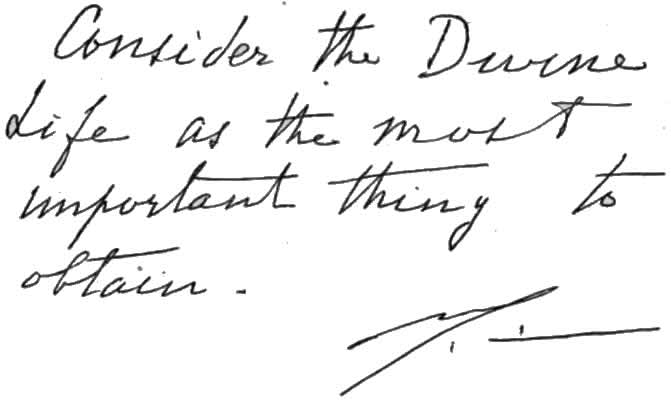 Consider the Divine
Life as the most
important thing to
obtain.